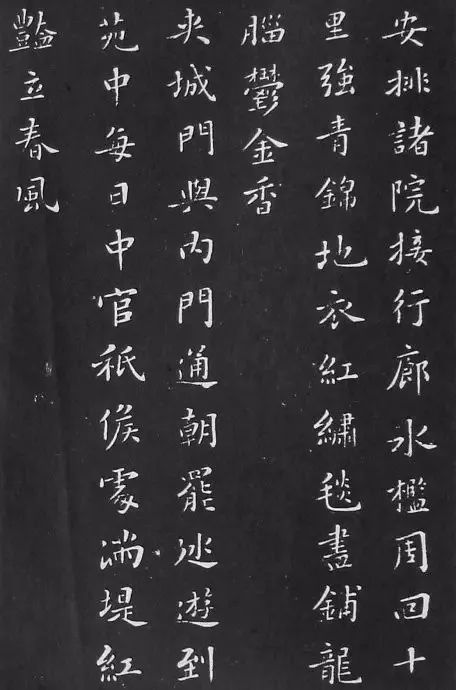 安排諸院接行廊水檻周回十
里強青錦地衣紅繡毯盡鋪龍
腦鬱金香
夾城門與內門通朝罷巡遊到
苑中每日中官祇候處滿堤紅
豔立春風